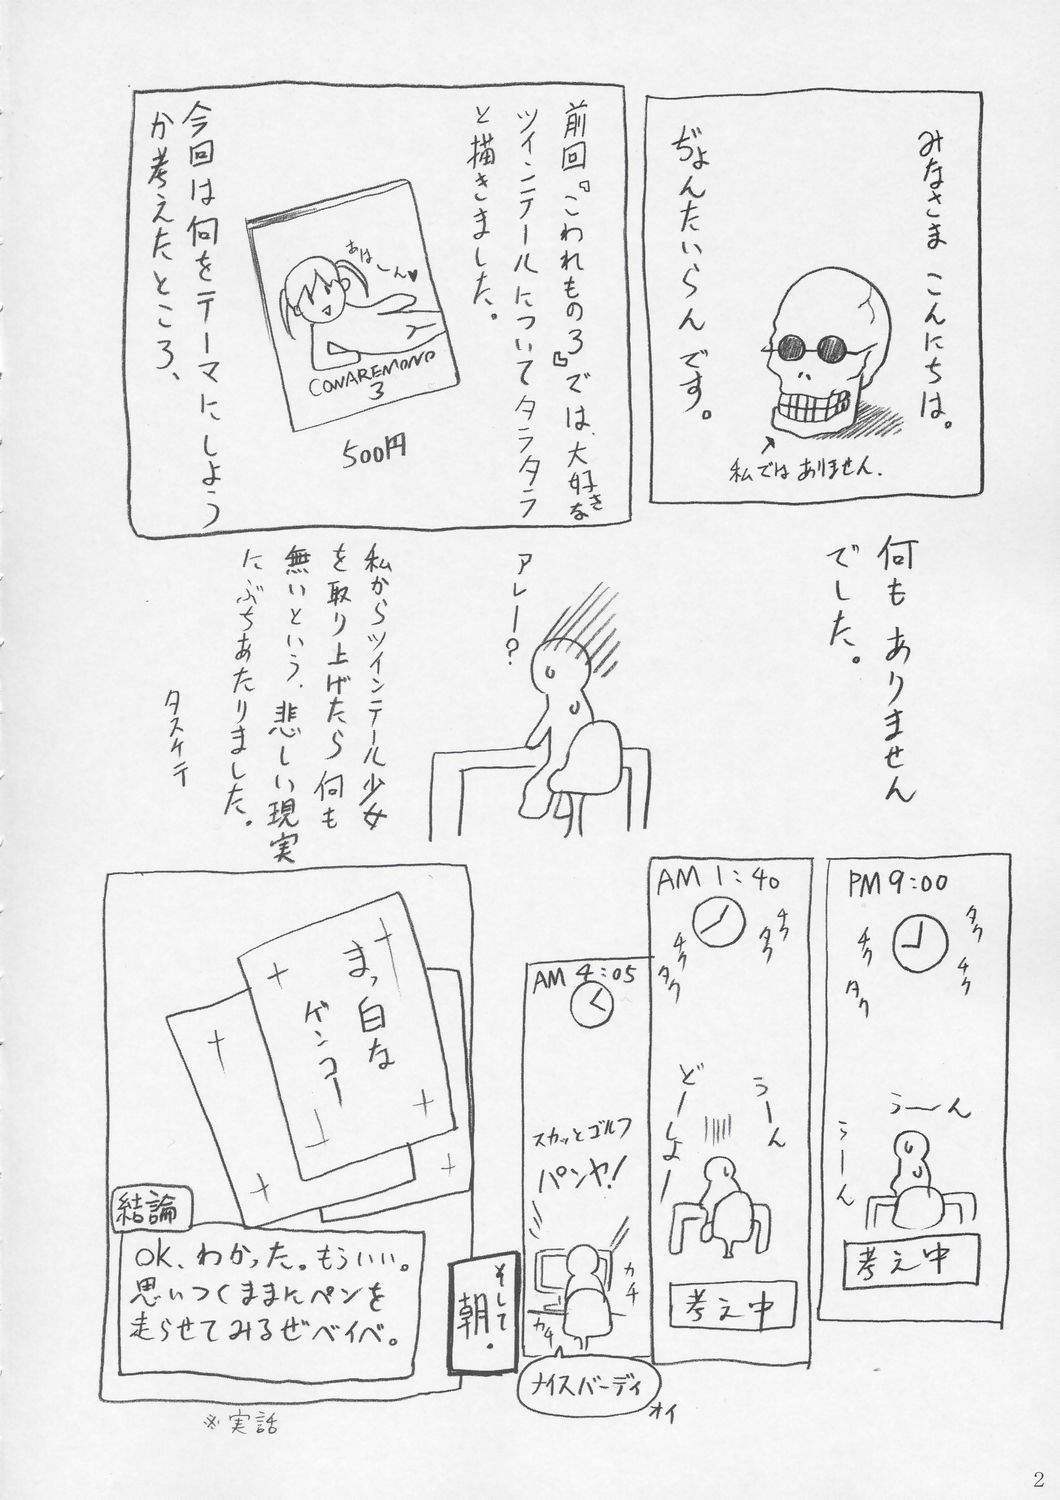 みなさま こんにちは。
ぢょんたいらんです。
私では ありません.
前回『こわれもの3』では、大好きな
ツインテールについてタラタラ
と描きました。
おはーん♥
CONAREMONO
3
500円
今回は何をテーマにしよう
か考えたところ、
何も ありません
でした。
アレー?
私からツインテール少女
を取り上げたら何も
無いという、悲しい現実
にぶちあたりました。
タスケテ
PM 9:00
タク
チク
チク
タク
うーん
うーん
考え中
AM 1:40
チク
タク
チク
タク
うーん
どーしよー
考え中
AM 4:05
スカッとゴルフ
パンヤ!
カチ
カチ
ナイスバーディ
オイ
そして
朝・
まっ白な
ゲンコー
結論
OK、わかった。もういい。
思いつくままにペンを
走らせてみるぜベイベ。
※実話
2